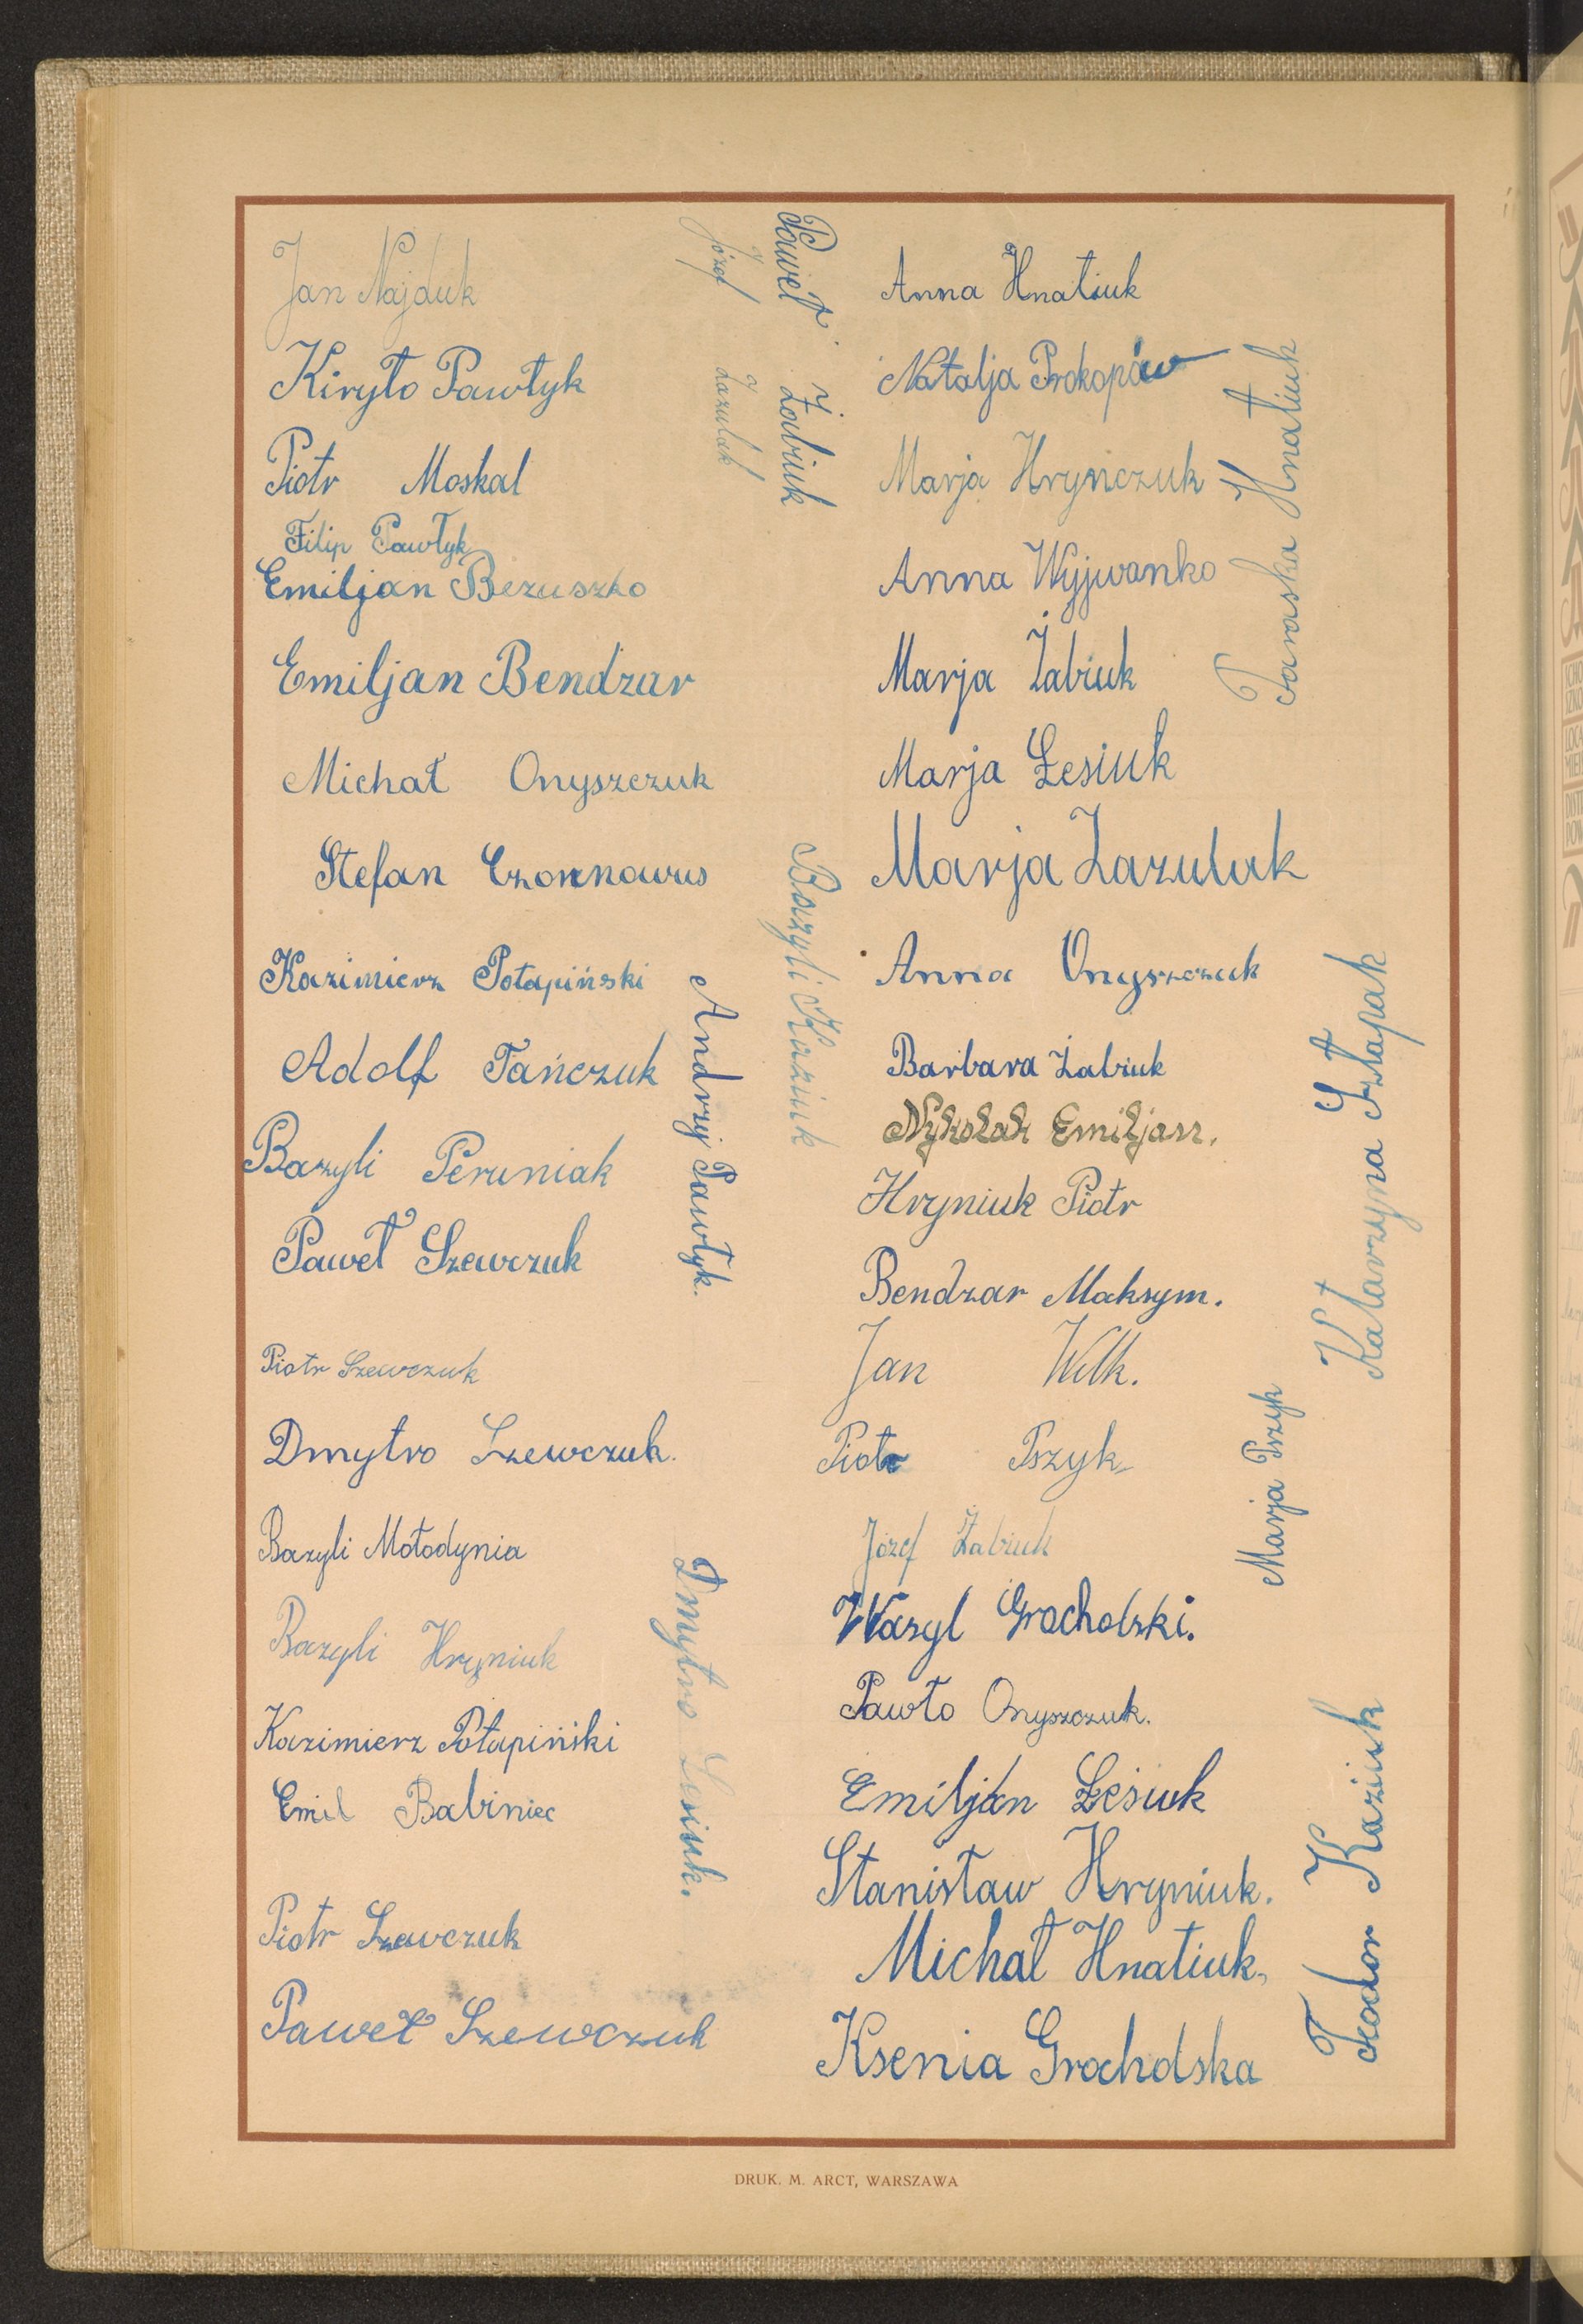 Jan Najduk
Kiryło Pawłyk
Piotr Moskal
Filip Pawłyk
Emiljan Bezuszko
Emiljan Bendzar
Michał Onyszczuk
Stefan
Kazimierz Potapiński
Adolf Tańczuk
Bazyli Peruniak
Paweł Szewczuk
Piotr Szewczuk
Dmytro Szewczuk.
Bazyli Mołodynia
Bazyli Hryniuk
Kazimierz Potapiński
Emil Babiniec
Piotr Szewczuk
Paweł Szewczuk
Józef Łazulak
Paweł Żabiuk
Andrzej Pawłyk.
Bazyli Kaziuk
Dmytro Lesiuk.
Anna Hnatiuk
Natalja Prokopów
Marja Hrynczuk
Anna Wyjwanko
Marja Żabiuk
Marja Łesiuk
Marja Łazulak
Anna Onyszczuk
Barbara Żabiuk
Nykołak Emiljan.
Hryniuk Piotr
Bendzar Maksym.
Jan Wilk.
Piotr Pszyk
Józef Żabiuk
Wasyl Grocholski.
Pawło Onyszczuk.
Emiljan Łesiuk
Stanisław Hryniuk.
Michał Hnatiuk
Ksenia Grocholska
Paraska Hnatiuk
Katarzyna Szłapak
Marja Pszyk
Teodor Kaziuk
DRUK. M. ARCT, WARSZAWA